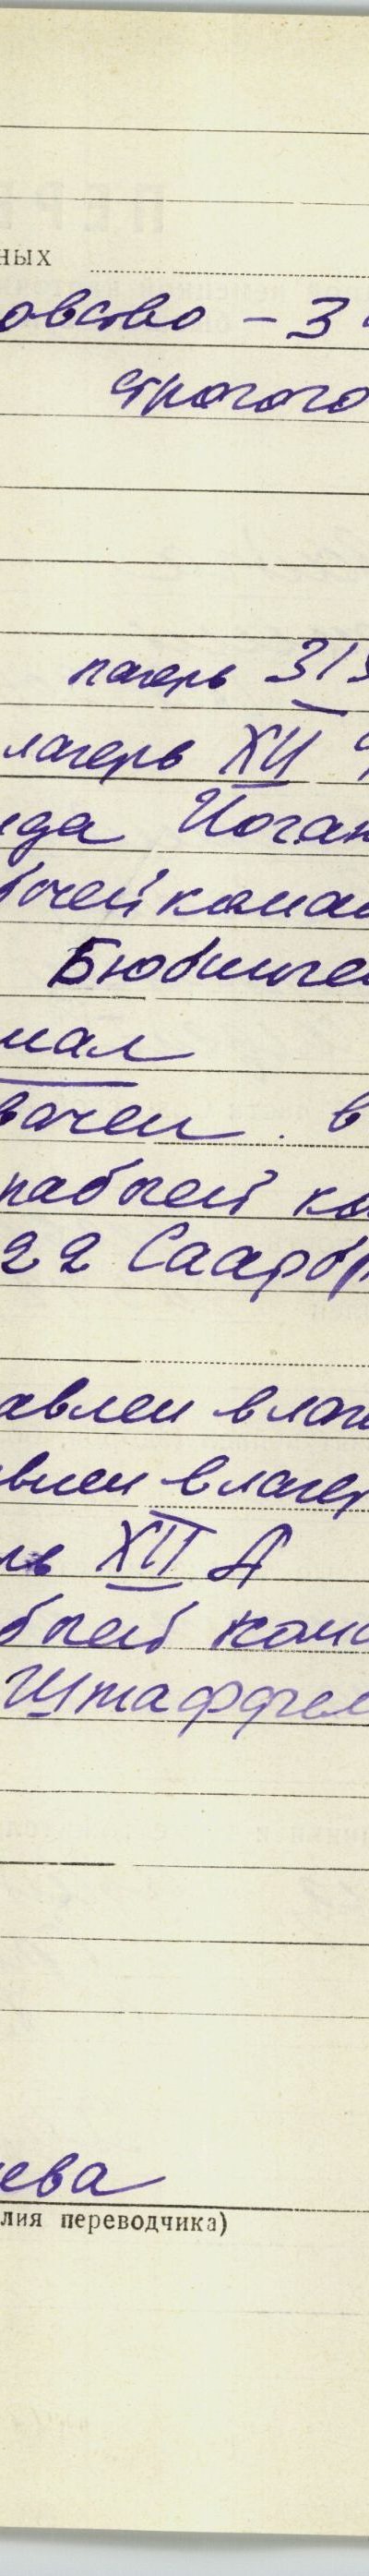 ных
овство - 3
строгого
лагерь 315
лагерь XII
да Йоган
бочей коман
Бюбинге
мал
вачен. в
рабочей ко
22 Саарбр
авлен в лаге
влен в лагер
ль XII А
бочей кома
Штаффел
ева
лия переводчика)